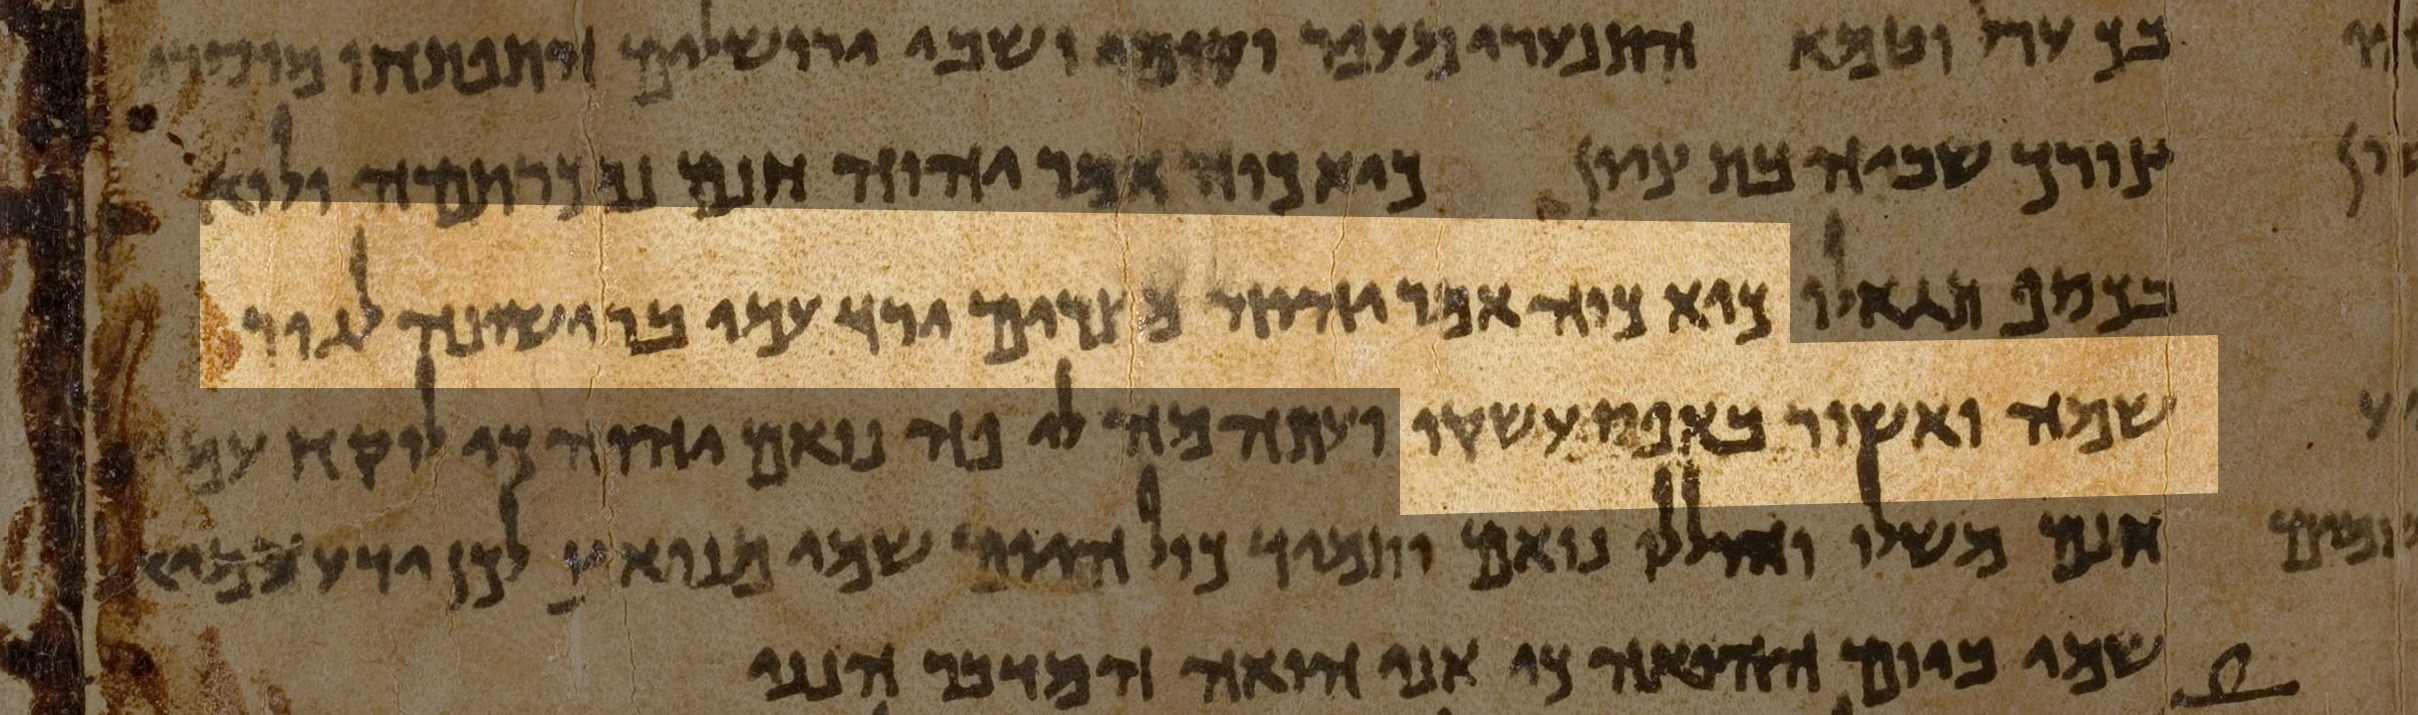 בך ערל וטמא התנערי מעפר וקומי ושבי ירושלים התפתחו מוסרי
צורך שביה בת ציון כיא כוה אמר יהוה חנם נמכרתמה ולוא
בכסף תגאלו כיא כוה אמר יהוה מצרים ירד עמי ברישונה לגור
שמה ואשור באפס עשקו ועתה מה לי פה נואם יהוה כי לוקח עמי
חנם משלו והוללו נואם ותמיד כול היום שמי מנואץ לכן ידע עמי
שמי ביום ההואה כי אני הואה המדבר הנני